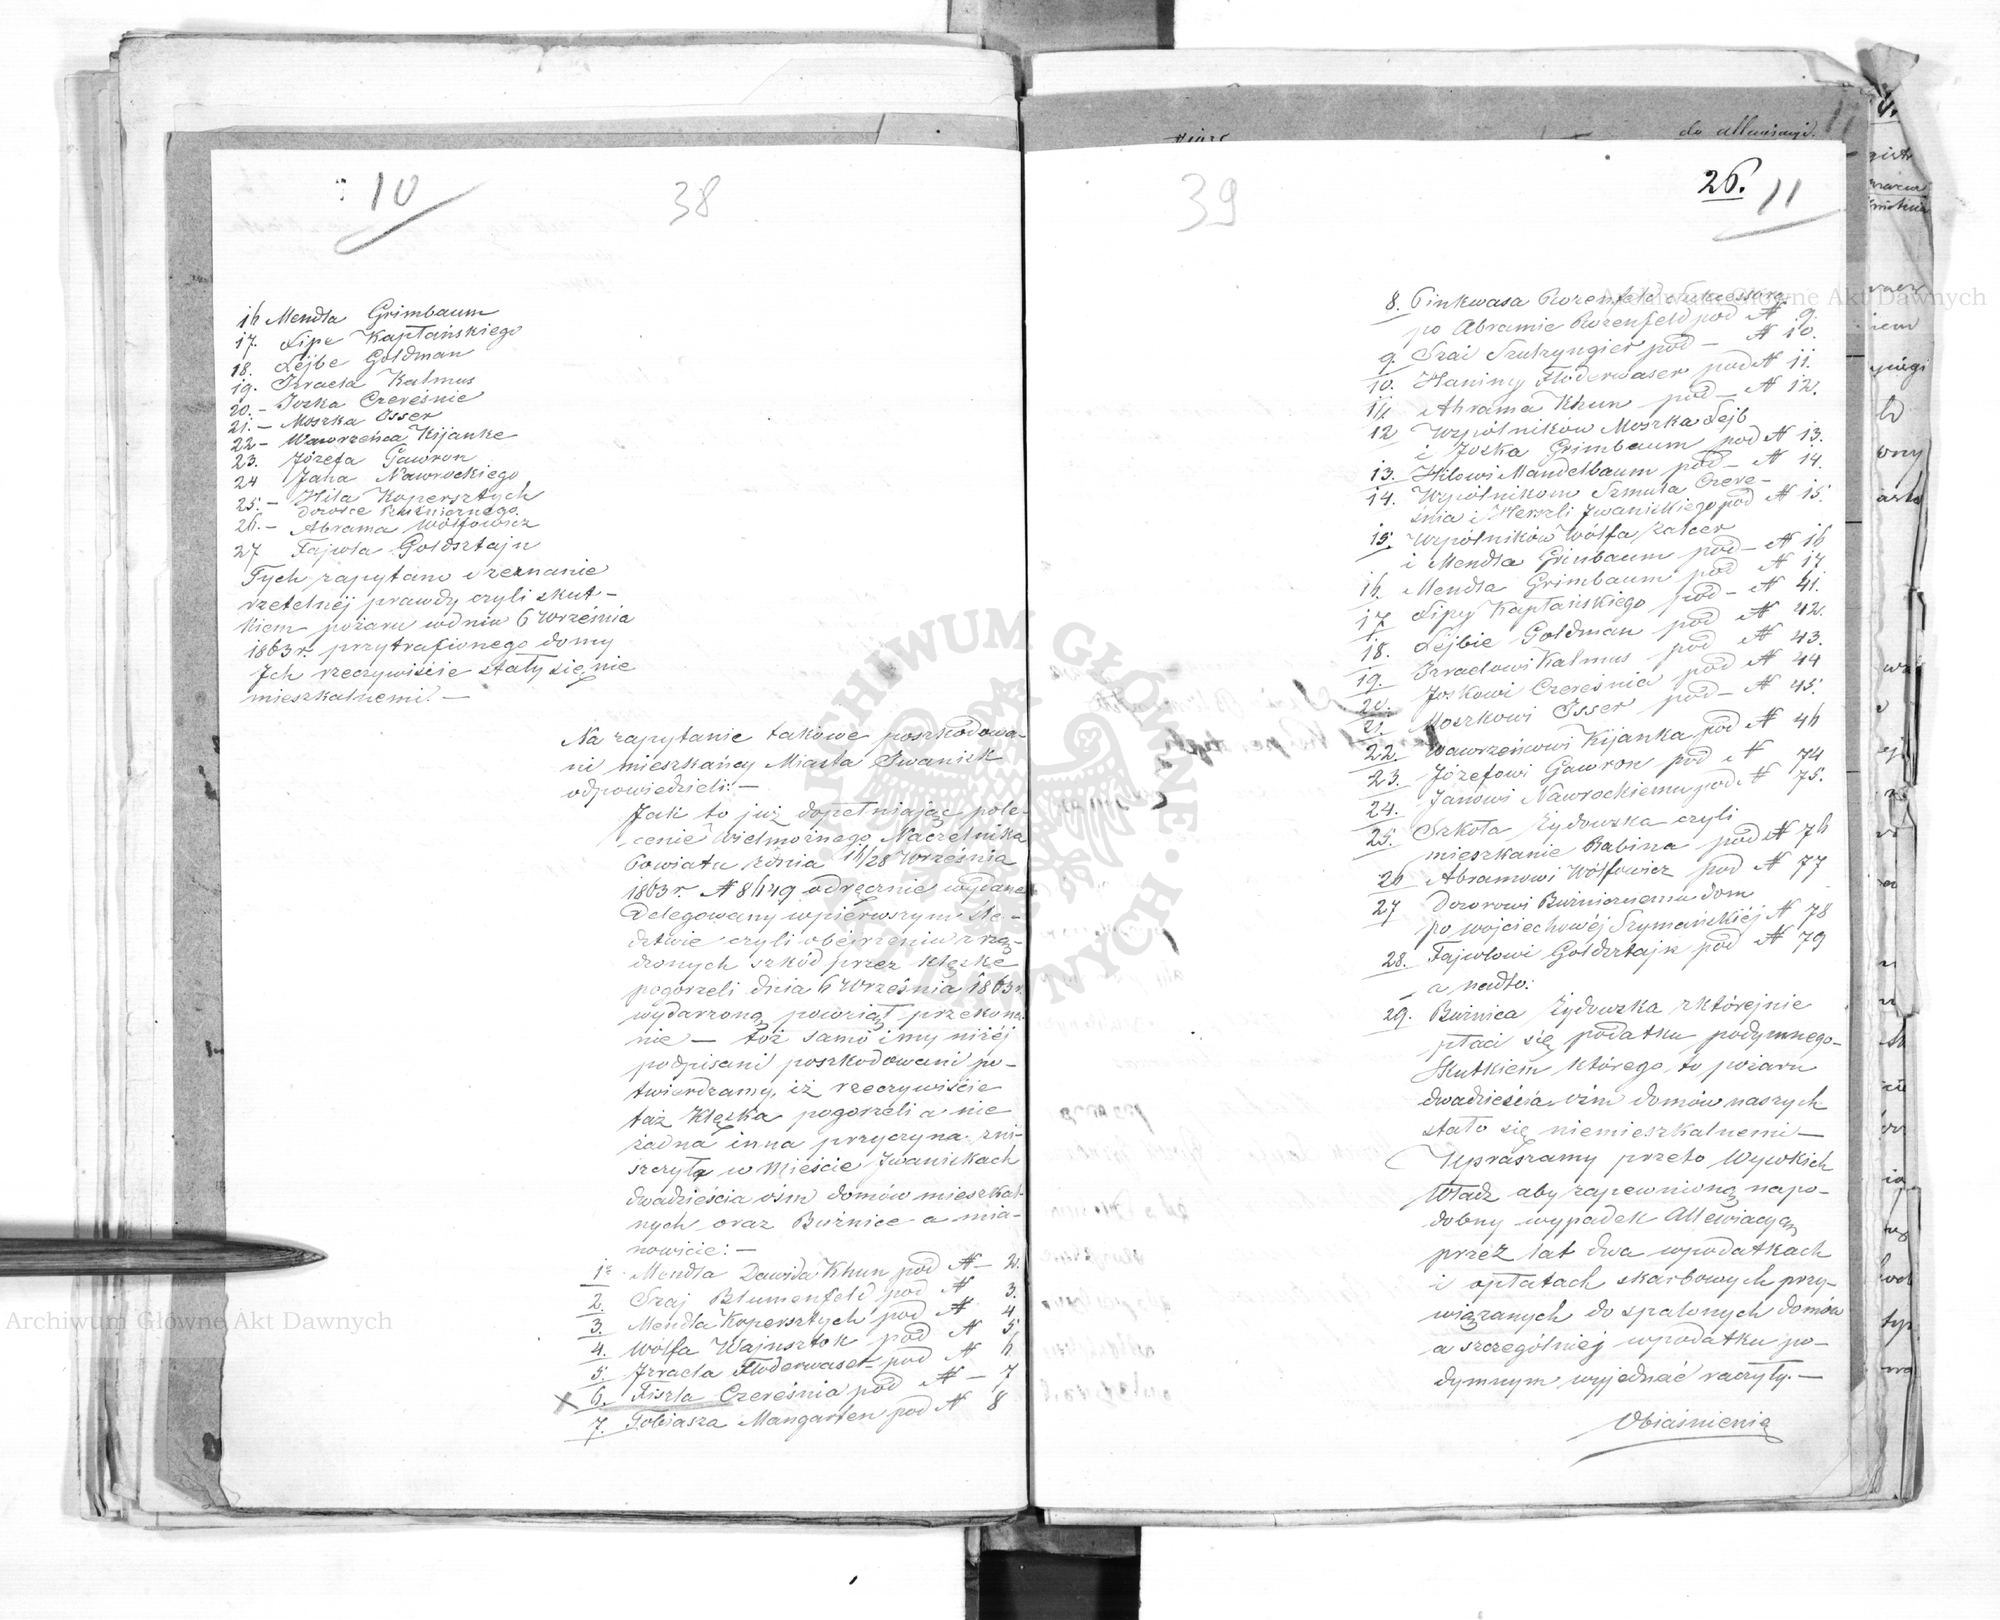 10
38
16 Mendla Grimbaum
17. Lipe Kapłańskiego
18. Lejbe Goldman
19. Izraela Kalmus
20. - Joska Czereśnie
21. - Moszka Isser
22 - Wawrzeńca Kijanke
23. Józefa Gawron
24 Jana Nawrockiego
25. - Hila Kopersztych
Dozorce Bużnicznego
26. - Abrama Wólfowicz
27 Fajwla Goldsztajn
Tych zapytano o zeznanie
rzetelnéj prawdy czyli skut-
kiem pożaru w dniu 6 Września
1863 r. przytrafionego domy
Ich rzeczywiście stały się nie
mieszkalnemi. -
Na zapytanie takowe poszkodowa-
ni mieszkańcy Miasta Iwanisk
odpowiedzieli: -
Jak to już dopełniając pole-
cenie Wielmożnego Naczelnika
Powiatu z dnia 16/28 Września
1863 r. N 8649 odręcznie wydane
Delegowany w pierwszym śle-
dztwie czyli obejrzeniu zrzą-
dzonych szkód przez klęskę
pogorzeli dnia 6 Września 1863 r.
wydarzoną powziął przekona-
nie - toż samo i my niżéj
podpisani poszkodowani po-
twierdzamy, iż rzeczywiście
taż klęska pogorzeli a nie
żadna inna przyczyna zni-
szczyła w Mieście Iwaniskach
dwadzieścia ośm domów mieszkal-
nych oraz Bużnice a mia-
nowicie: -
1. Mendla Dawida Khun pod N - 2.
2. Szaj Blumenfeld pod N 3.
3. Mendla Kopersztych pod N 4
4. Wólfa Wajnsztok pod N 5
5. Izraela Floderwaser pod N 6
6. Fiszla Czereśnia pod N - 7
7. Tobiasza Mangarten pod N 8
39
26.
11
8. Pinkwasa Rozenfeld Sukcessora
po Abramie Rozenfeld pod N 9.
9. Szai Szulzyngier pod - N 10.
10. Haniny Floderwaser pod N 11.
11. Abrama Khun pod - N 12.
12 Wspólników Moszka Lejb
i Joska Grimbaum pod N 13.
13. Hilowi Mandelbaum pod - N 14.
14. Wspólnikom Szmula Czere-
śnia i Herszli Iwaniskiego pod N 15.
15. Wspólników Wólfa Zalcer
i Mendla Grinbaum pod - N 16
16. Mendla Grimbaum pod N 17
17 Lipy Kapłańskiego pod - N 41.
18. Lejbie Goldman pod N 42.
19. Izraelowi Kalmus pod N 43.
20. Joskowi Czereśnia pod N 44
21. Moszkowi Isser pod - N 45.
22. Wawrzeńcowi Kijanka pod N 46
23. Józefowi Gawron pod N 74
24. Janowi Nawrockiemu pod N 75.
25. Szkoła Żydowska czyli
mieszkanie Rabina pod N 76
26 Abramowi Wólfowicz pod N 77
27 Dozorowi Bużniczemu dom
po Wojciechowéj Szymańskiéj N 78
28. Fajwlowi Goldsztajn pod N 79
a nadto:
29. Bużnica Żydowska z którėj nie
płaci się podatku podymnego -
Skutkiem którego to pożaru
dwadzieścia ośm domów naszych
stało się niemieszkalnemi -
Upraszamy przeto Wysokich
Władz aby zapewnioną na po-
dobny wypadek Allewiacyą
przez lat dwa w podatkach
i opłatach skarbowych przy-
wiązanych do spalonych domów
a szczególniéj w podatku po-
dymnym wyjednać raczyły. -
Objaśnienia
do allewiacyi.
Archiwum Główne Akt Dawnych
Archiwum Główne Akt Dawnych
ARCHIWUM GŁÓWNE AKT DAWNYCH